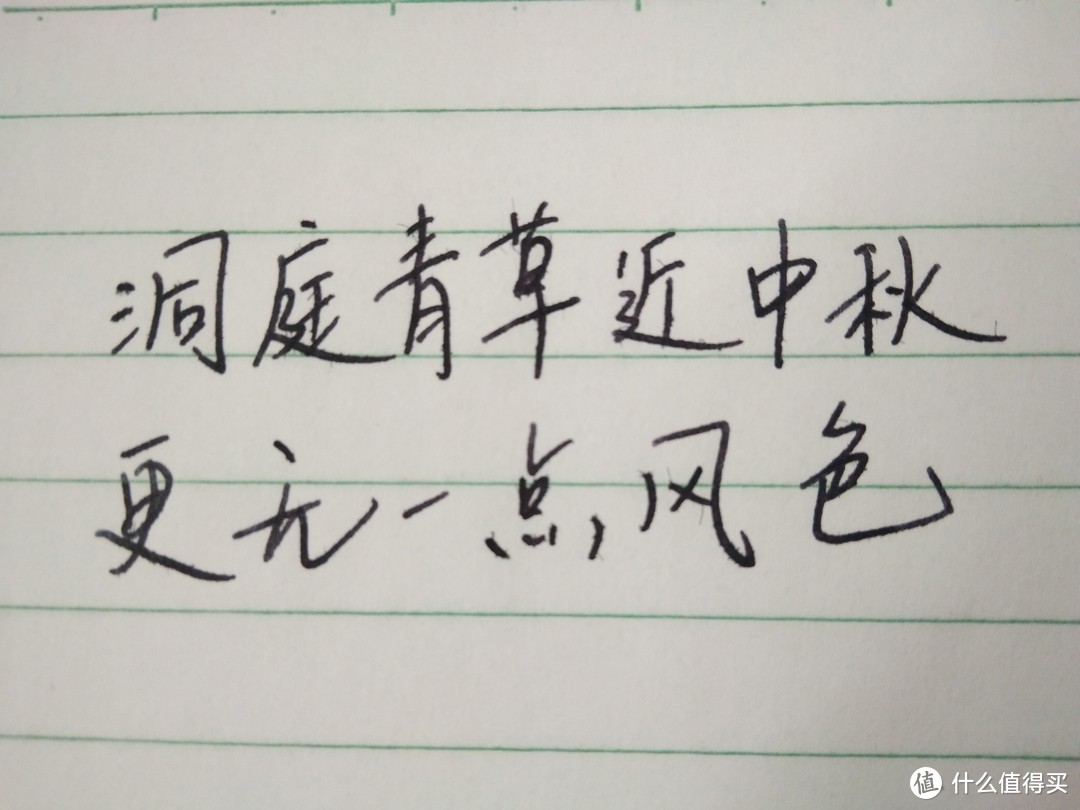 洞庭青草近中秋
更无一点风色
值 什么值得买